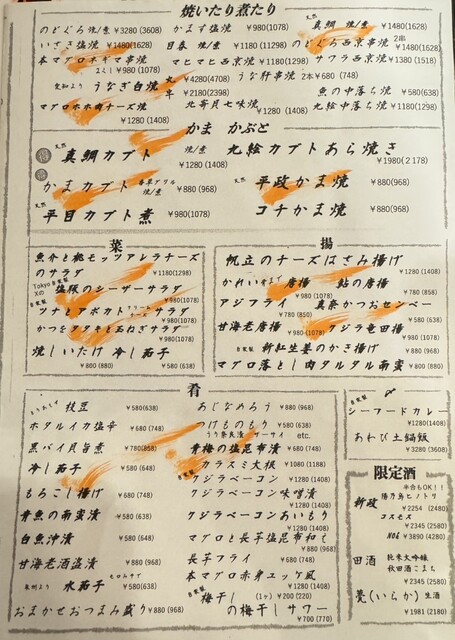 焼いたり煮たり
のどぐろ 焼/煮 ¥3280 (3608)
いさき塩焼 ¥1480(1628)
本マグロネギマ串焼
¥980 (1078)
愛知より うなぎ白焼 丸 ¥4280(4708)
半 ¥2180(2398)
マグロホホ肉チーズ焼
¥1280 (1408)
かます塩焼 ¥980(1078)
目春 焼/煮 ¥1180 (1298)
マヒマヒ西京焼 ¥1180(1298)
うなぎ肝串焼 2本 ¥680 (748)
北寄貝七味焼
¥1280 (1408)
天然 真鯛 焼/煮 ¥1480(1628)
のどぐろ西京串焼 2串 ¥1480(1628)
サワラ西京焼 ¥1380(1518)
魚の中落ち焼 ¥580(638)
九絵中落ち焼 ¥1180(1298)
かま かぶと
天然 真鯛カブト 焼/煮
¥1280 (1408)
かまカブト 焼/煮 ¥880 (968)
天然 平目カブト煮 ¥980(1078)
九絵カブトあら焼き
¥1980(2178)
天然 平政かま焼 ¥880(968)
コチかま焼 ¥880(968)
菜
魚介と桃モッツアレラチーズ
のサラダ ¥1180(1298)
塩豚のシーザーサラダ
¥980(1078)
ツナとアボカド サラダ
¥980(1078)
かつをタタキと玉ねぎサラダ
¥980(1078)
焼しいたけ 冷し茄子
¥800 (880) ¥580(638)
揚
帆立のチーズはさみ揚げ
¥1280 (1408)
かれい 唐揚 鮎の唐揚
¥980(1078) ¥780 (858)
アジフライ 真奈かつおセンベー
¥780 (850) ¥580 (638)
甘海老唐揚 クジラ竜田揚
¥980(1078) ¥980(1078)
自家製 新紅生姜のかき揚げ ¥880 (968)
マグロ落とし肉タルタル南蛮 ¥800 (880)
肴
枝豆 ¥580(638)
ホタルイカ塩辛 ¥680 (748)
黒バイ貝旨煮 ¥780(858)
冷し茄子 ¥580 (648)
もろこし揚げ ¥680 (748)
青魚の南蛮漬 ¥580 (638)
白魚沖漬 ¥580 (648)
甘海老酒盗漬 ¥880 (968)
泉州より 水茄子 ¥580(638)
おまかせおつまみ盛り ¥880 (968)
あじなめろう ¥880 (968)
つけものもり ¥580 (638)
うり奈良漬 ザーサイ etc.
青梅の塩昆布漬 ¥680 (748)
自家製 カラスミ大根 ¥1080 (1188)
クジラベーコン ¥1280 (1408)
クジラベーコン味噌漬
¥1280 (1408)
クジラベーコンあいもり
¥1280 (1408)
マグロと長芋塩昆布和え
¥880 (968)
長芋フライ ¥680 (748)
本マグロ赤身ユッケ風
¥1280 (1408)
自家製 梅干し (1ヶ) ¥200 (220)
の梅干しサワー
¥700 (770)
自家製 シーフードカレー
¥1280 (1408)
あわび土鍋飯
¥3280 (3608)
限定酒
半合もOK!!
新政 陽乃鳥ヒノトリ
¥2254 (2480)
コスモス
¥2345 (2580)
No6 ¥3890 (4280)
田酒 純米大吟醸
秋田酒こまち
¥2345 (2580)
甍(いらか)生酒
¥1981 (2180)